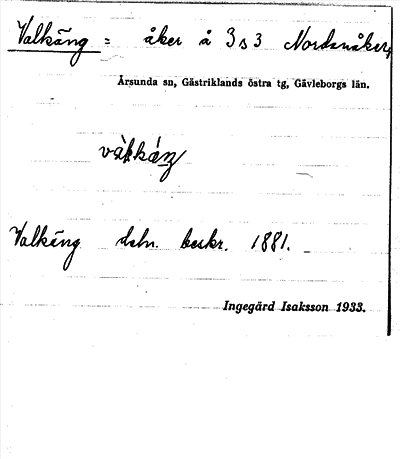 Valkäng = åker å 3s3 Nordanåker,
Årsunda sn, Gästriklands östra tg, Gävleborgs län.
Valkäng dsbn. beskr. 1881.
Ingegärd Isaksson 1933.